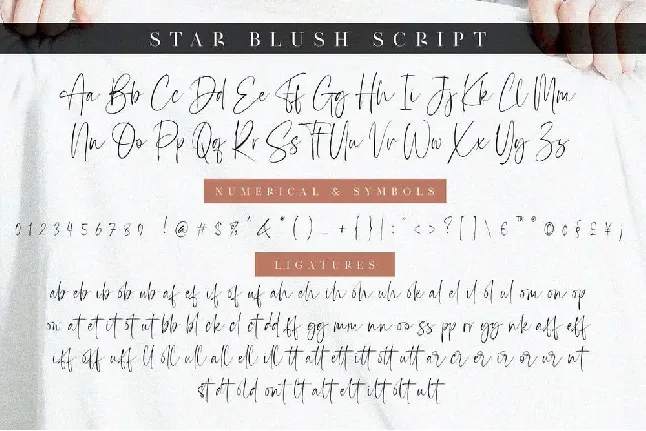 STAR BLUSH SCRIPT
Aa Bb Cc Dd Ee Ff Gg Hh Ii Jj Kk Ll Mm
Nn Oo Pp Qq Rr Ss Tt Uu Vv Ww Xx Yy Zz
NUMERICAL & SYMBOLS
0 1 2 3 4 5 6 7 8 9 ! @ # $ % ^ & * ( ) _ + { } | : " < > ? [ ] \ € ™ ® © ¢ § £ ¥ ;
LIGATURES
ab eb ib ob ub af ef if of uf ah eh ih oh uh ok al el il ol ul om on op
on at et it ot ut bb bl ck cl ct dd ff gg mm nn oo ss pp rr yy nk aff eff
iff off uff ll oll ull all ell ill tt att ett itt ott utt ar cr er ir or ur nt
st dt old ont lt alt elt ilt olt ult